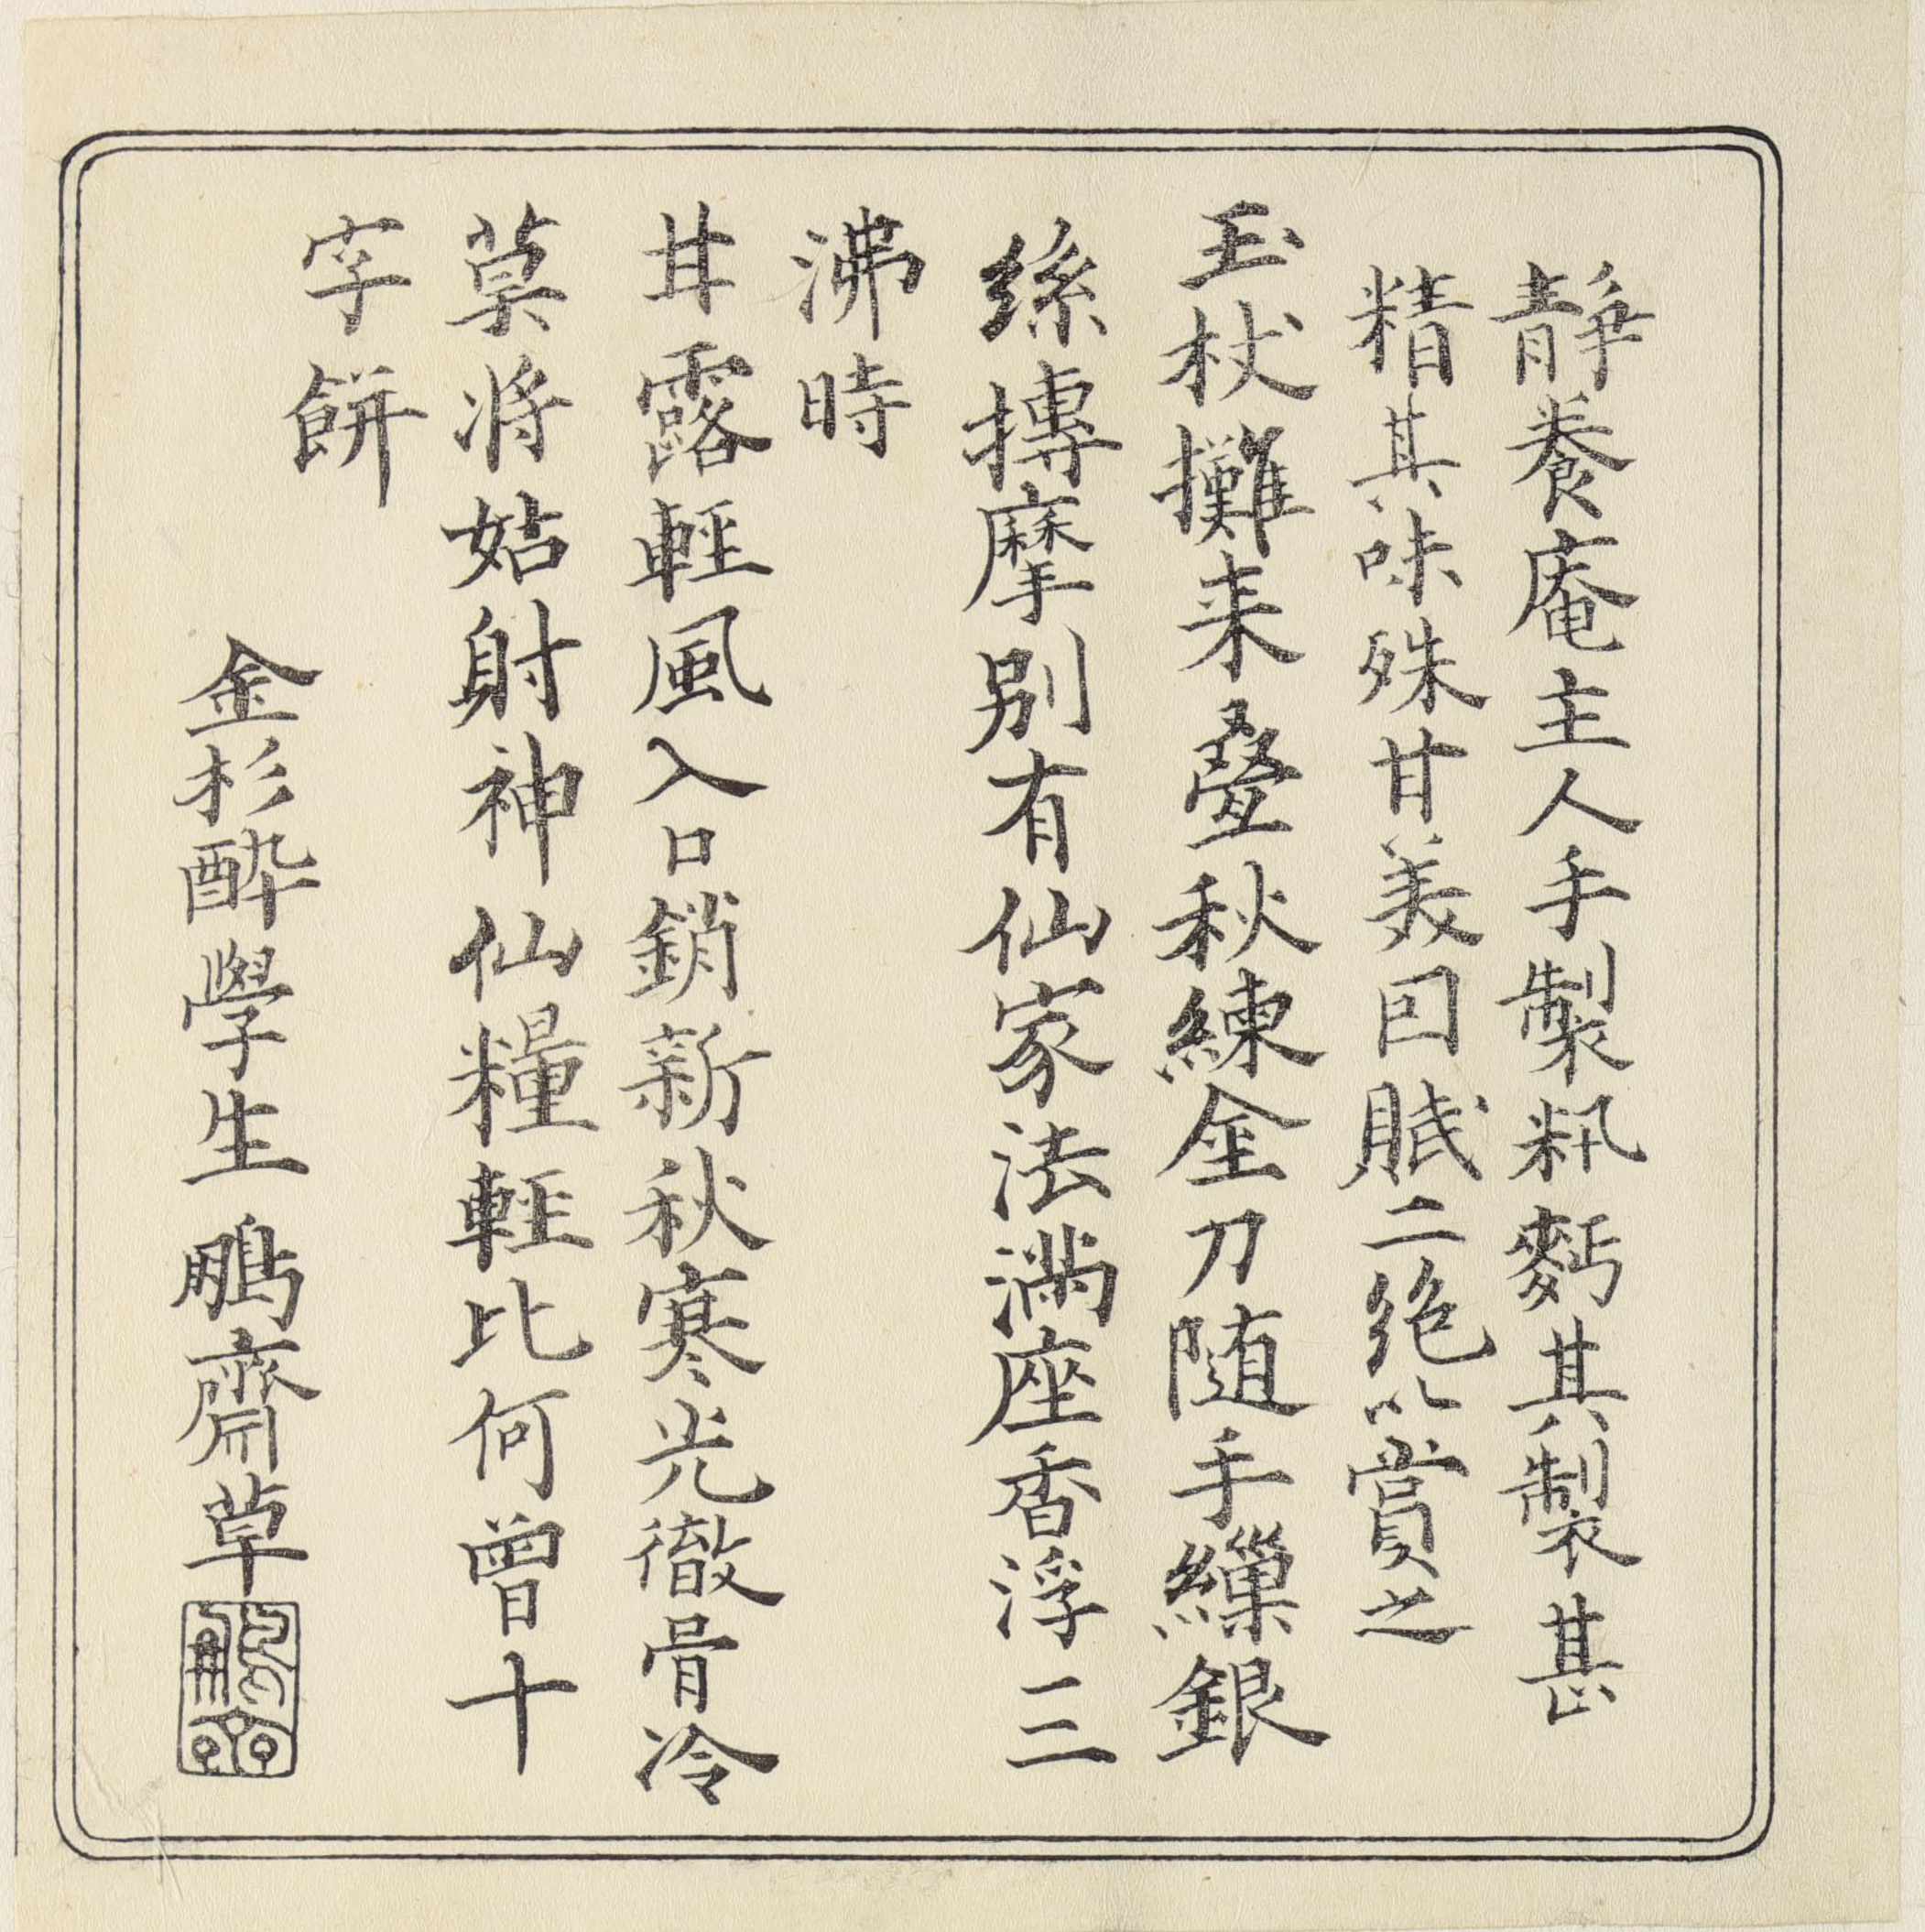 靜養庵主人手製籸麪其製甚
精其味殊甘美因賦二絶以賞之
玉杖攤来疊秋練金刀随手繅銀
絲摶摩別有仙家法満座香浮三
沸時
甘露輕風入口銷新秋寒光徹骨冷
莫将姑射神仙糧輕比何曾十
字餅
金杉酔學生鵬齋草